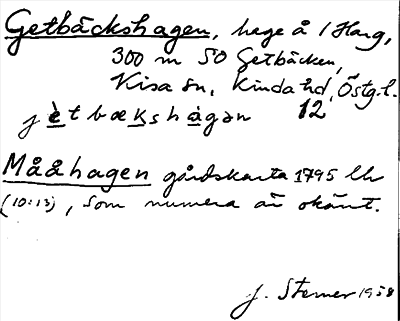 Getbäckshagen, hage å 1 Harg,
300 m SO Getbäcken,
Kisa sn, Kinda hd, Östg.l.
jètbækshàgan 12
Mååhagen gårdskarta 1795 Uh
(10:13), som numera är okänt.
J. Sterner 1958